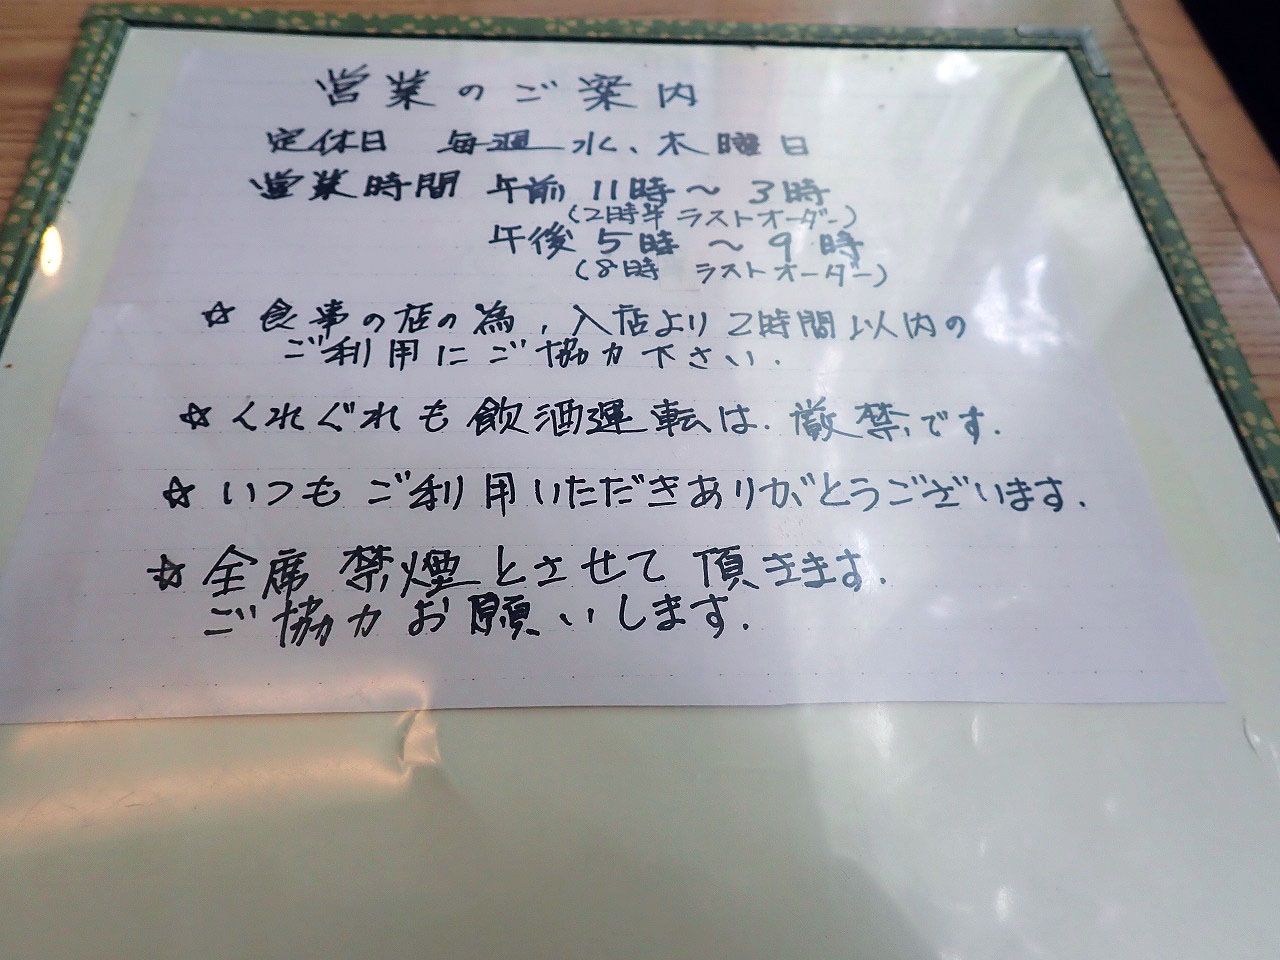 営業のご案内
定休日 毎週 水、木曜日
営業時間 午前 11時～3時
(2時半 ラストオーダー)
午後 5時～9時
(8時 ラストオーダー)
☆ 食事の店の為、入店より2時間以内の
ご利用にご協力下さい.
☆ くれぐれも飲酒運転は.厳禁です.
☆ いつもご利用いただきありがとうございます.
☆ 全席禁煙とさせて頂きます.
ご協力お願いします.